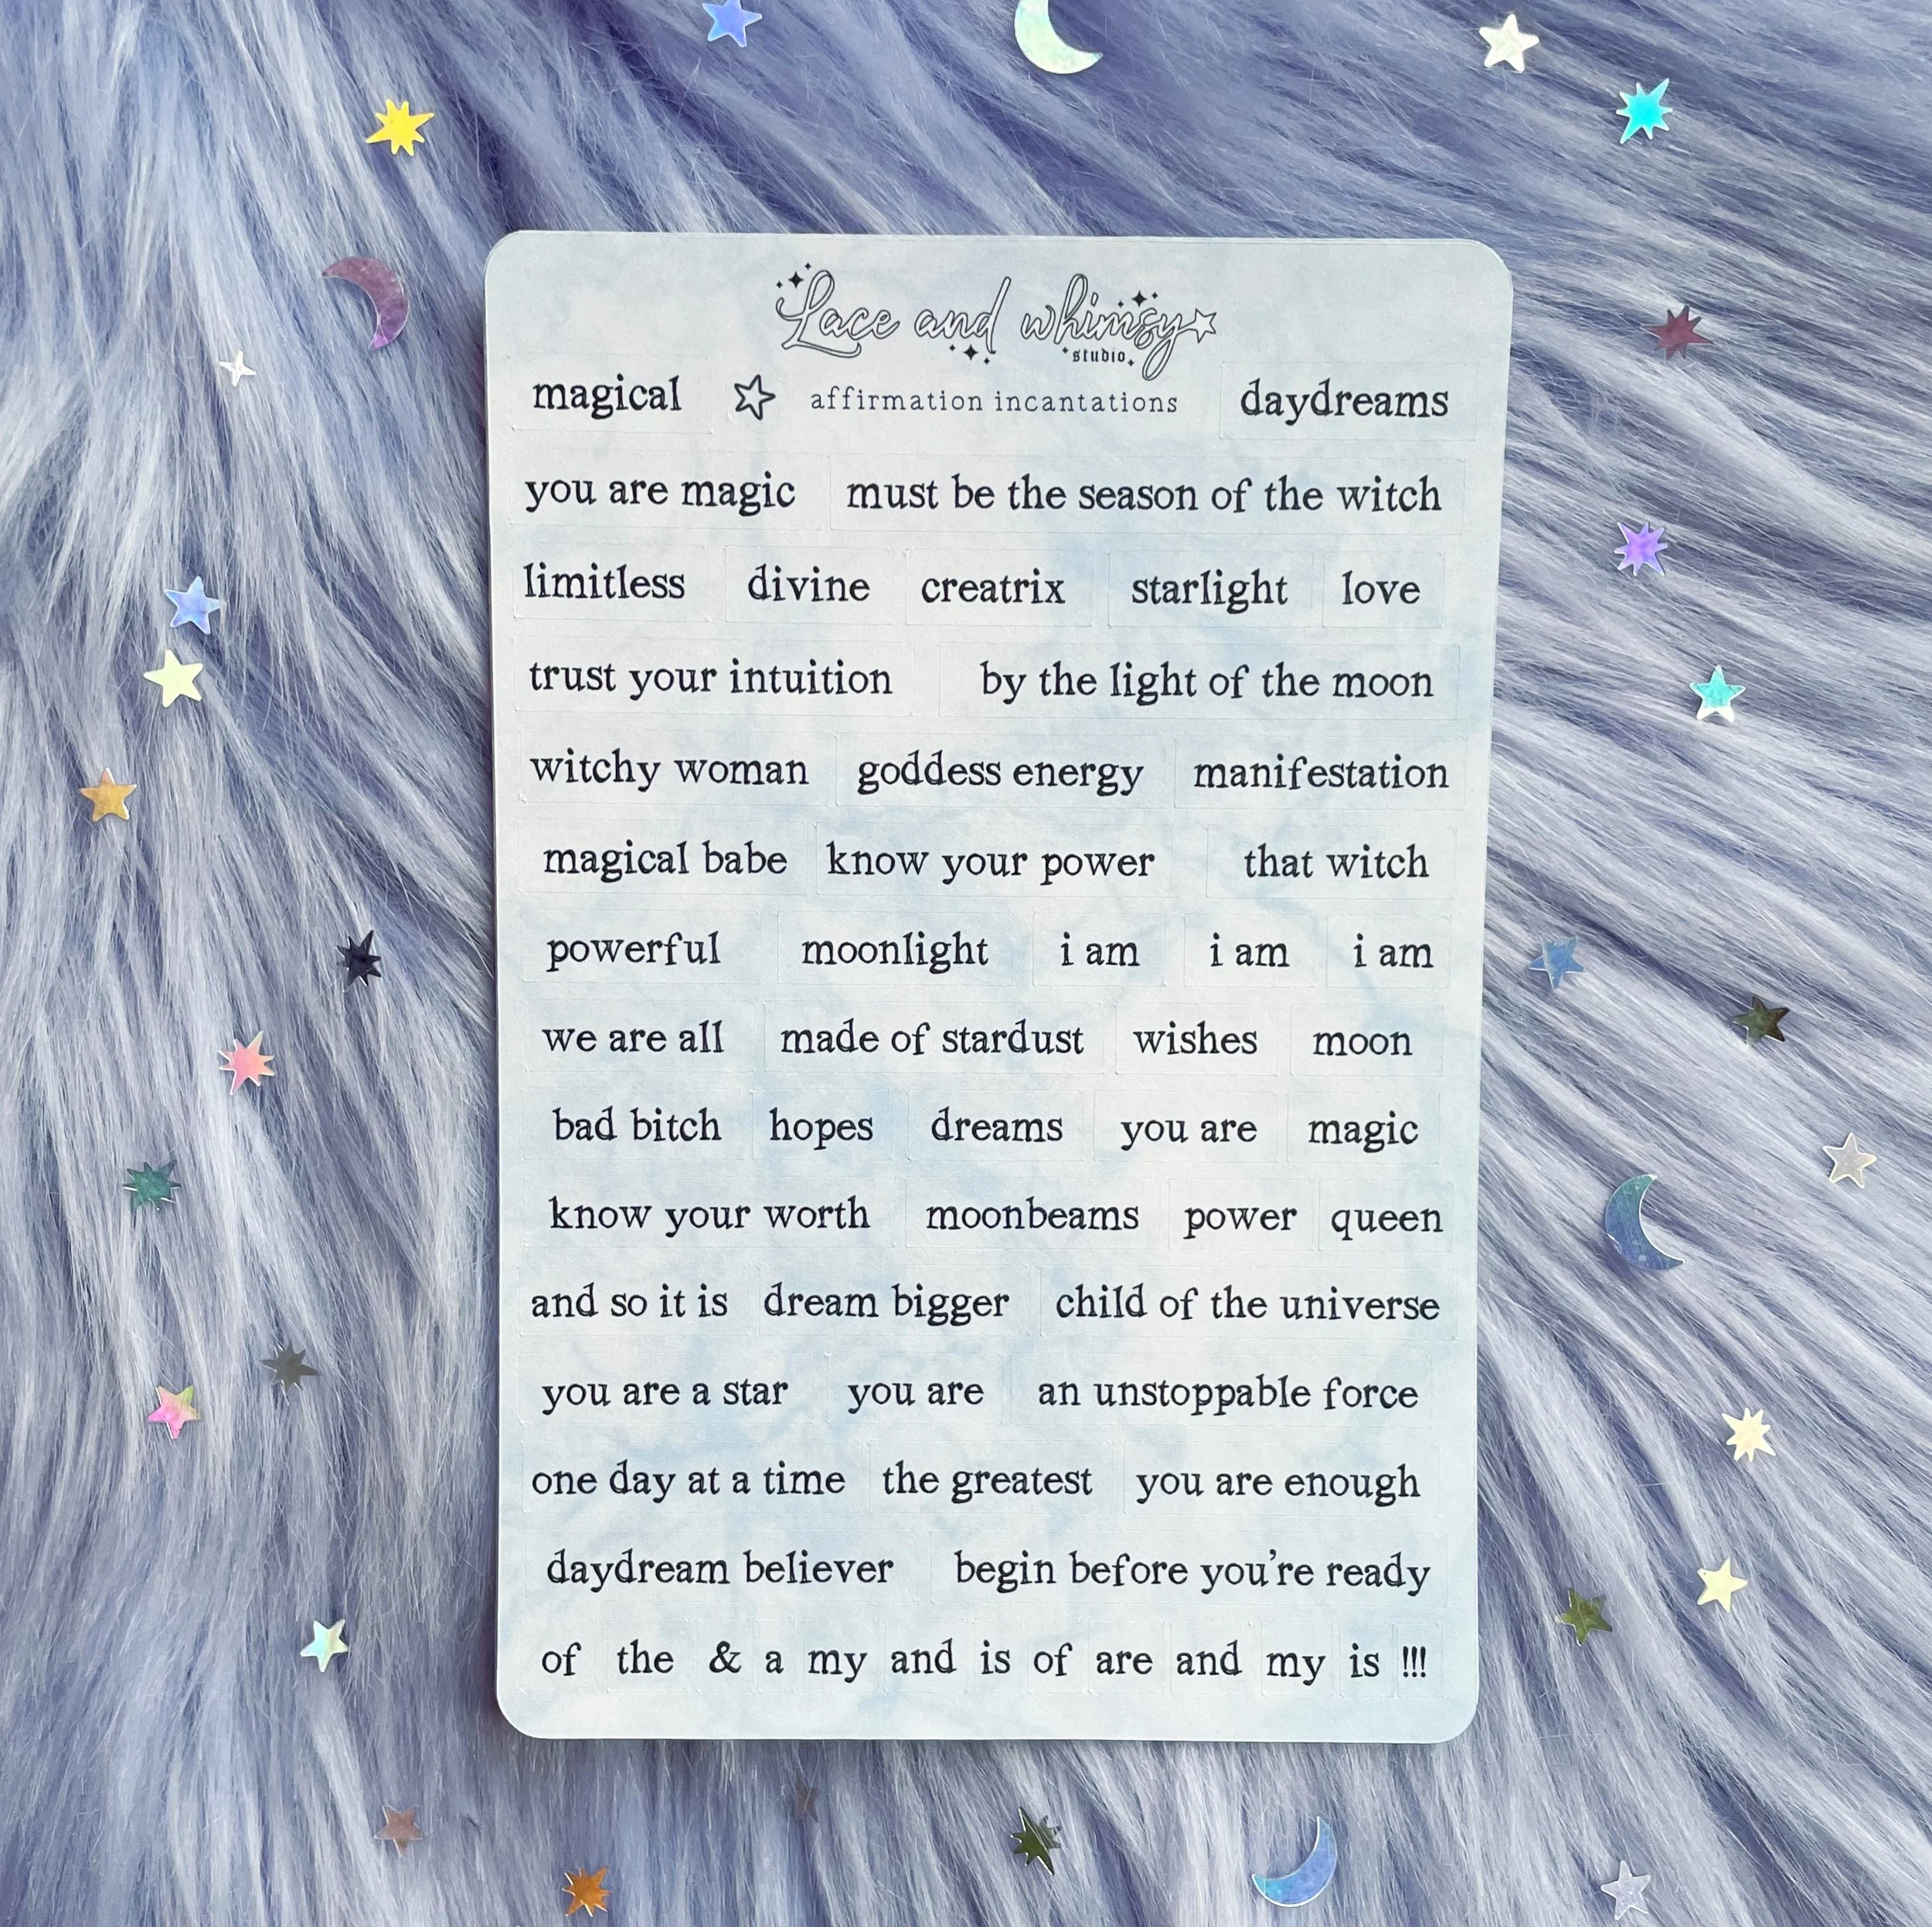 Lace and whimsy
studio
magical affirmation incantations daydreams
you are magic must be the season of the witch
limitless divine creatrix starlight love
trust your intuition by the light of the moon
witchy woman goddess energy manifestation
magical babe know your power that witch
powerful moonlight i am i am i am
we are all made of stardust wishes moon
bad bitch hopes dreams you are magic
know your worth moonbeams power queen
and so it is dream bigger child of the universe
you are a star you are an unstoppable force
one day at a time the greatest you are enough
daydream believer begin before you're ready
of the & a my and is of are and my is !!!